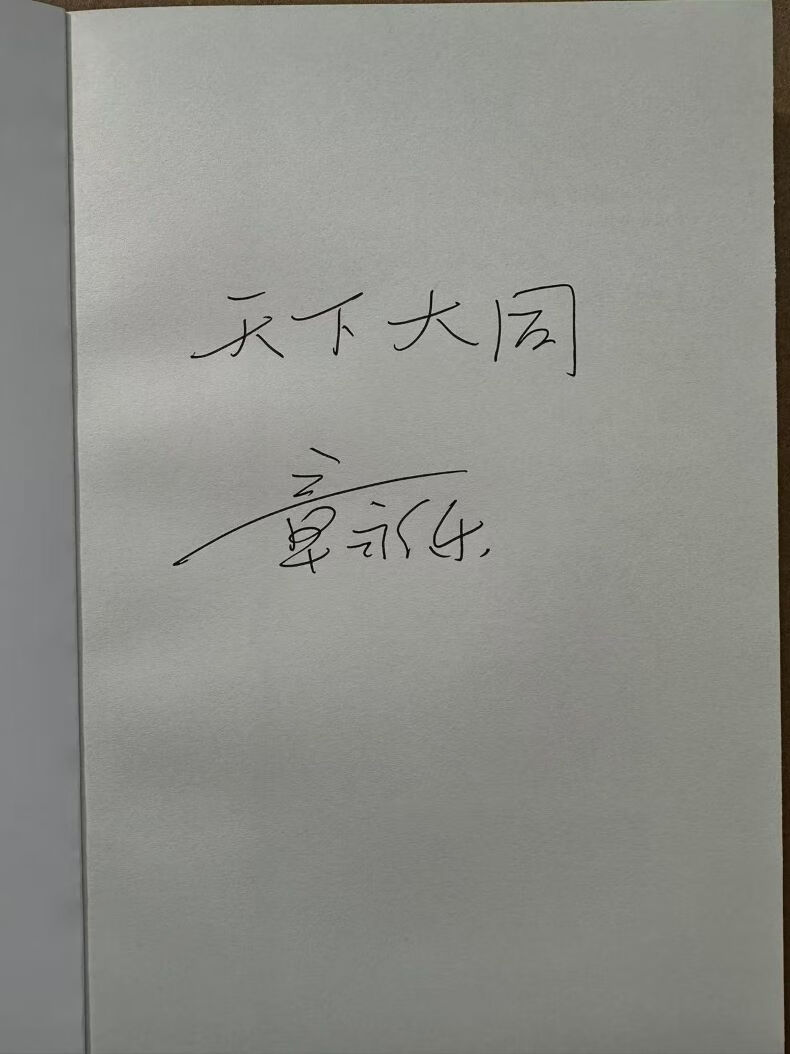 天下大同
章永乐